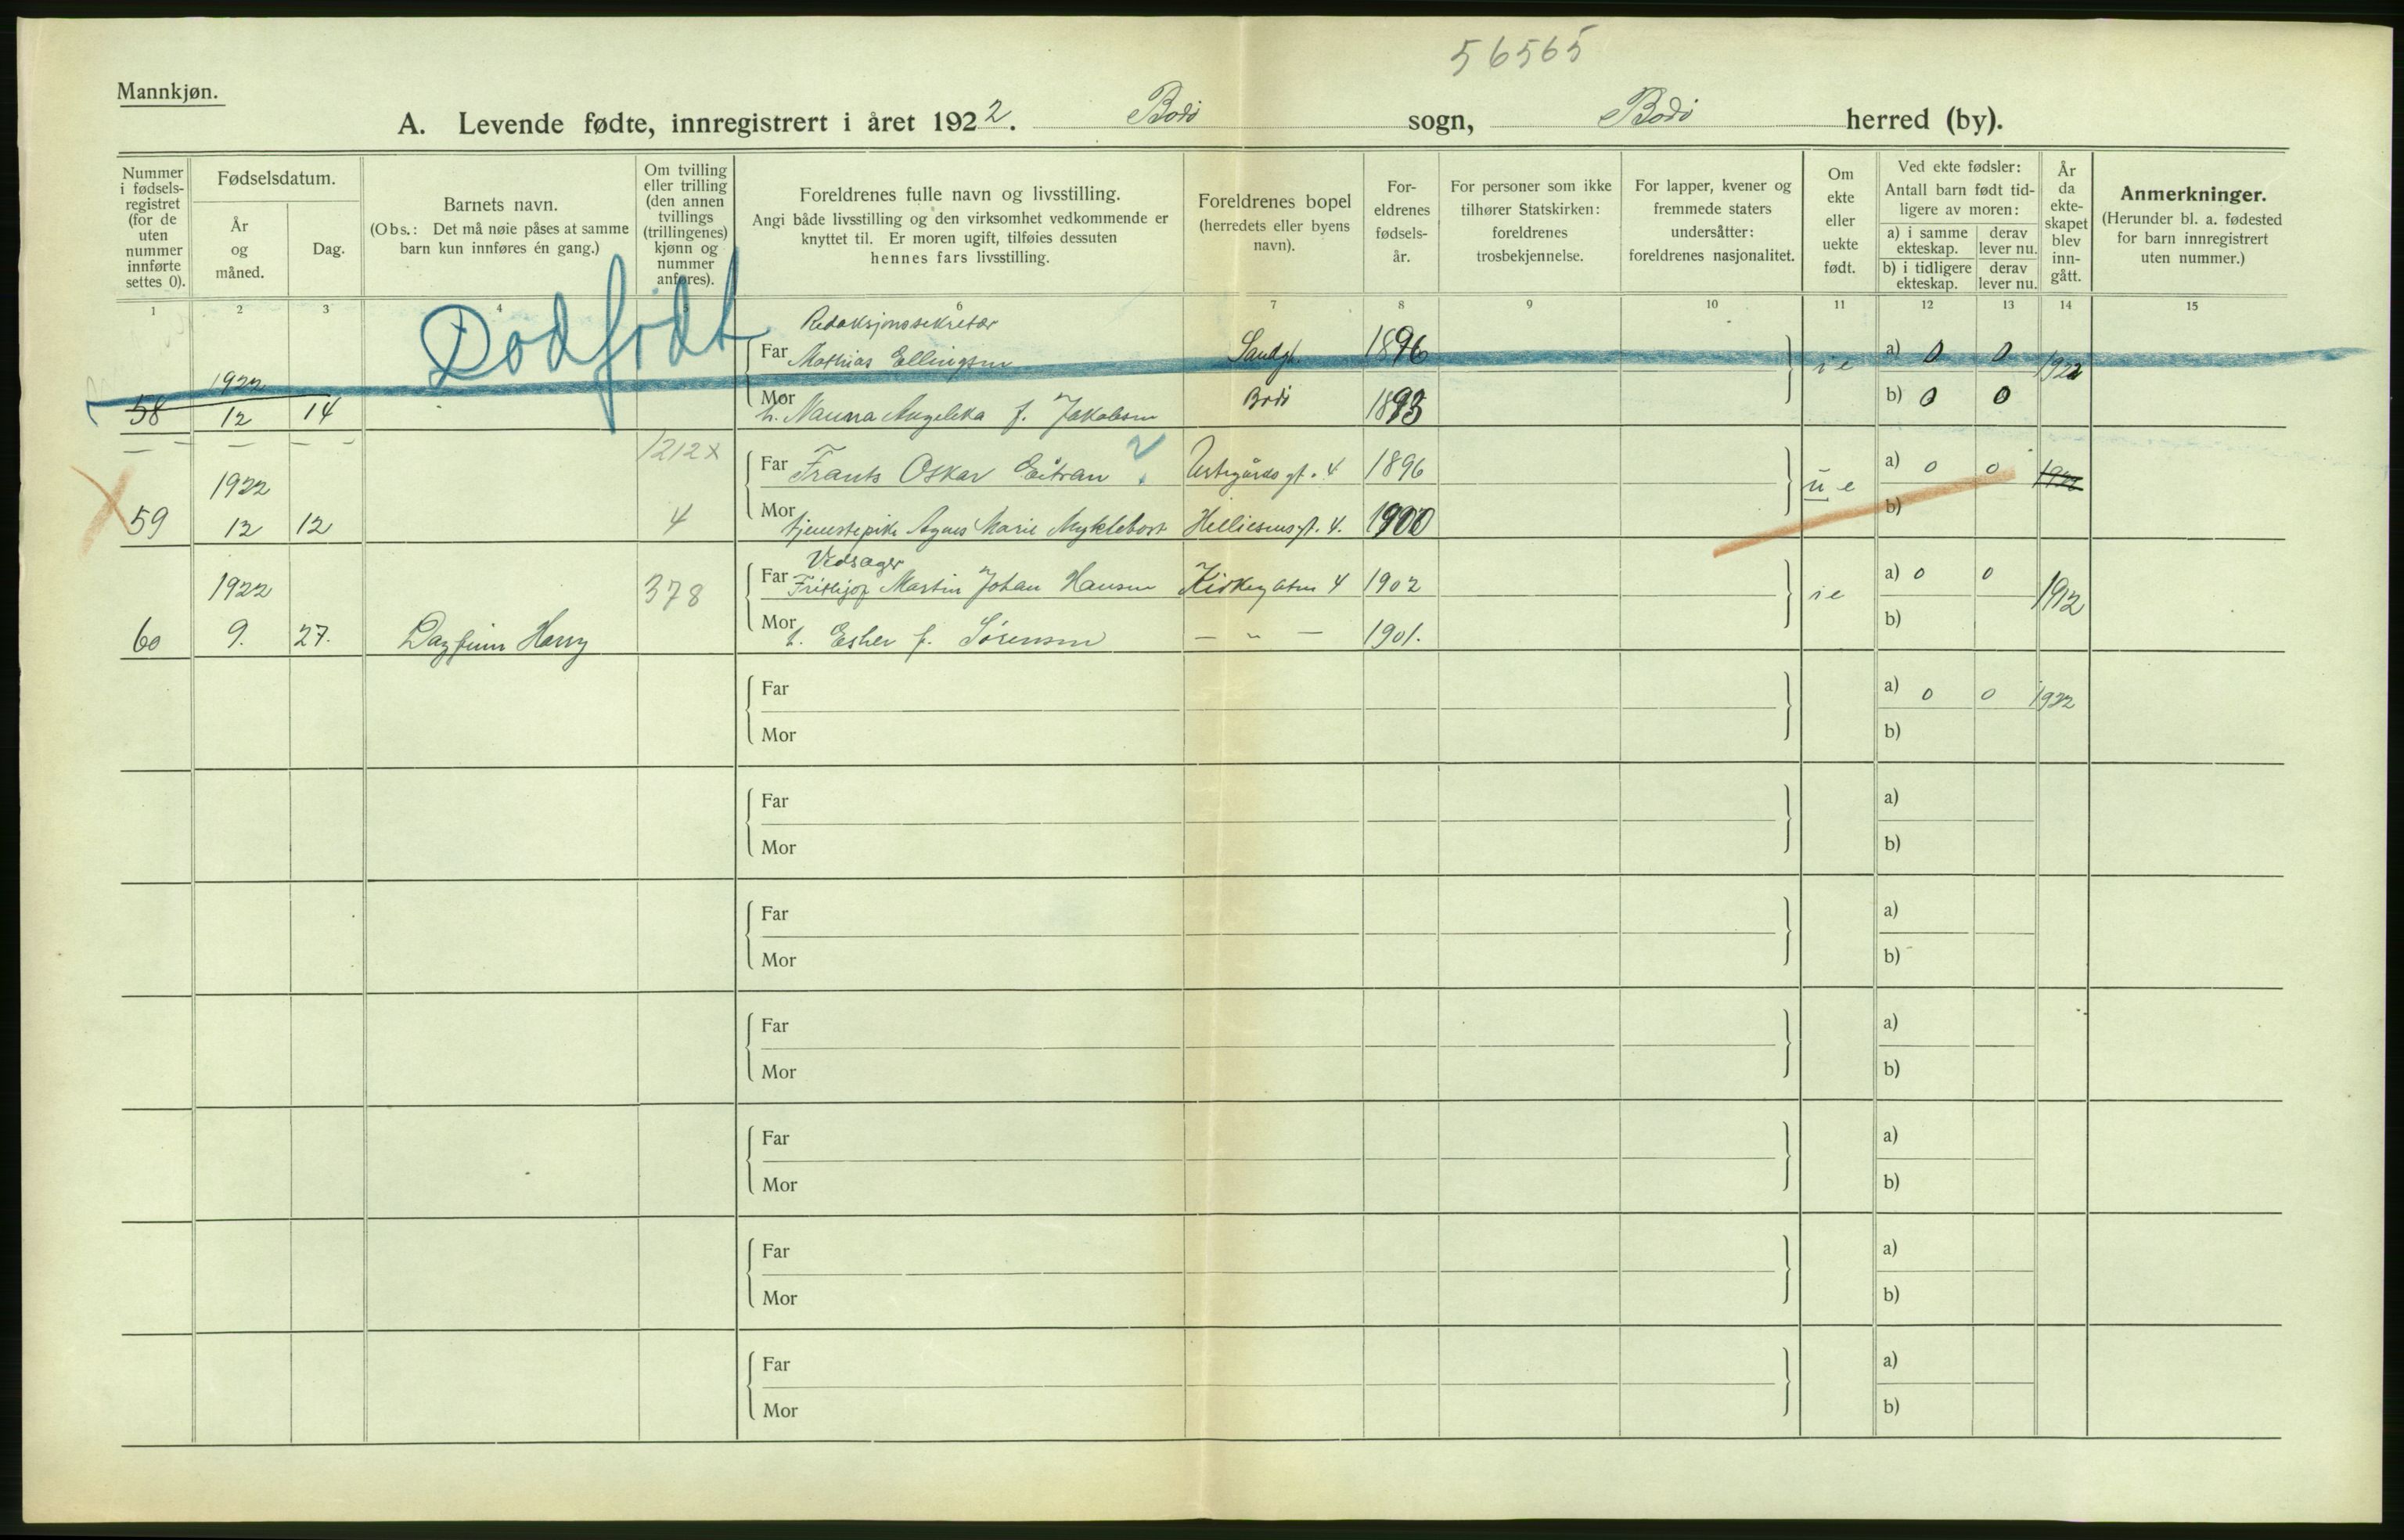 56565
Mannkjøn.
A. Levende fødte, innregistrert i året 1922. Bodö sogn, Bodö herred (by).
Nummer i fødsels-registret (for de uten nummer innførte settes 0).
Fødselsdatum.
År og måned.
Dag.
Barnets navn.
(Obs.: Det må nøie påses at samme barn kun innføres én gang.)
Om tvilling eller trilling (den annen tvillings (trillingenes) kjønn og nummer anføres).
Foreldrenes fulle navn og livsstilling.
Angi både livsstilling og den virksomhet vedkommende er knyttet til. Er moren ugift, tilføies dessuten hennes fars livsstilling.
Foreldrenes bopel
(herredets eller byens navn).
For-eldrenes fødsels-år.
For personer som ikke tilhører Statskirken: foreldrenes trosbekjennelse.
For lapper, kvener og fremmede staters undersåtter: foreldrenes nasjonalitet.
Om ekte eller uekte født.
Ved ekte fødsler:
Antall barn født tid-ligere av moren:
a) i samme ekteskap.
derav lever nu.
b) i tidligere ekteskap.
derav lever nu.
År da ekte-skapet blev inn-gått.
Anmerkninger.
(Herunder bl. a. fødested for barn innregistrert uten nummer.)
1 2 3 4 6 7 8 9 10 11 12 13 14 15
Dødfødt
Redaksjonssekretær
Far Mathias Ellingsen Sandgt. 1896 a) 0 0
1922 ie 1922
Mor h. Nanna Angelika f. Jakobsen Bodö 1893 b) 0 0
58 12 14
1212x
Far Frants Oskar Eitran ? 4 1896 a) 0 0
1922 ue 1922
59 12 12 4
Mor tjenestepike Agnes Marie Myklebost Helliesensgt. 4. 1900 b)
Vedsager
Far Frithjof Martin Johan Hansen Kirkegaten 4 1902 a) 0 0
1922 378 ie 1912
Mor h. Esher f. Sörensen — " — 1901. b)
60 9. 27. Dagfinn Harry
Far a) 0 0 1922
Mor b)
Far a)
Mor b)
Far a)
Mor b)
Far a)
Mor b)
Far a)
Mor b)
Far a)
Mor b)
Far a)
Mor b)